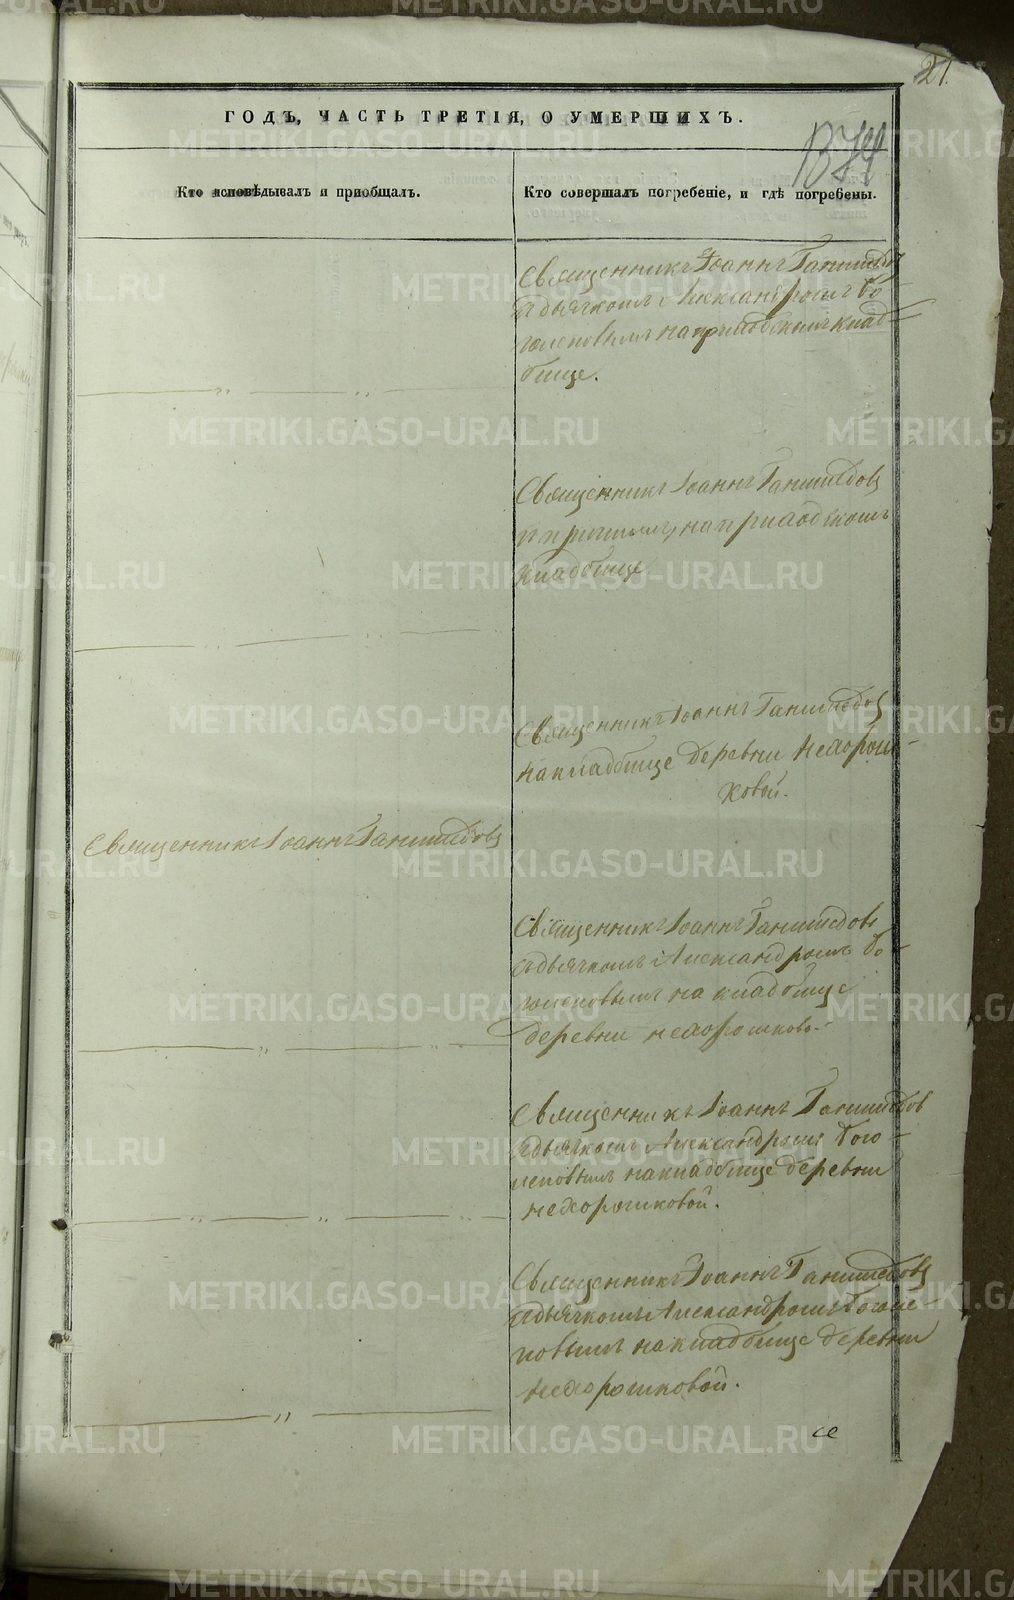 21.
ГОДЪ, ЧАСТЬ ТРЕТІЯ, О УМЕРШИХЪ.
1374
Кто исповѣдывалъ и пріобщалъ.
Кто совершалъ погребеніе, и гдѣ погребены.
Священникъ Іоаннъ
съ дьячкомъ Александромъ Бо-
голеповымъ на приходскомъ клад-
бище.
Священникъ Іоаннъ
на приходскомъ
кладбище
Священникъ Іоаннъ
на кладбище деревни Нехорош-
ковой.
Священникъ Іоаннъ
Священникъ Іоаннъ
съ дьячкомъ Александромъ Бо-
голеповымъ на кладбище
деревни Нехорошково-
Священникъ Іоаннъ
съ дьячкомъ Александромъ Бого-
леповымъ на кладбище деревни
Нехорошковой.
Священникъ Іоаннъ
съ дьячкомъ Александромъ Боголе-
повымъ на кладбище деревни
Нехорошковой.
METRIKI.GASO-URAL.RU